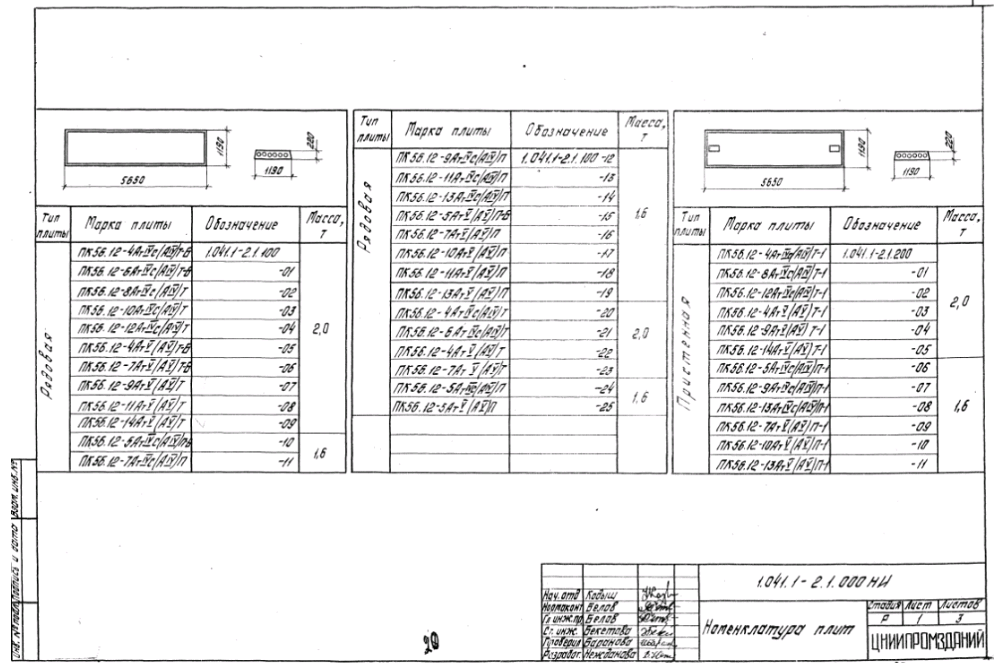 5650
1190
220
1190
Тип плиты | Марка плиты | Обозначение | Масса, т
Рядовая
ПК56.12-4АтIVс(АIV)Т-б | 1.041.1-2.1.100 | 2,0
ПК56.12-6АтIVс(АIV)Т-б | -01
ПК56.12-8АтIVс(АIV)Т | -02
ПК56.12-10АтIVс(АIV)Т | -03
ПК56.12-12АтIVс(АIV)Т | -04
ПК56.12-4АтV(АV)Т-б | -05
ПК56.12-7АтV(АV)Т-б | -06
ПК56.12-9АтV(АV)Т | -07
ПК56.12-11АтV(АV)Т | -08
ПК56.12-14АтV(АV)Т | -09
ПК56.12-5АтIVс(АIV)П-б | -10 | 1,6
ПК56.12-7АтIVс(АIV)П | -11
Тип плиты | Марка плиты | Обозначение | Масса, т
Рядовая
ПК56.12-9АтIVс(АIV)П | 1.041.1-2.1.100-12 | 1,6
ПК56.12-11АтIVс(АIV)П | -13
ПК56.12-13АтIVс(АIV)П | -14
ПК56.12-5АтV(АV)П-б | -15
ПК56.12-7АтV(АV)П | -16
ПК56.12-10АтV(АV)П | -17
ПК56.12-11АтV(АV)П | -18
ПК56.12-13АтV(АV)П | -19
ПК56.12-4АтIVс(АIV)Т | -20 | 2,0
ПК56.12-6АтIVс(АIV)Т | -21
ПК56.12-4АтV(АV)Т | -22
ПК56.12-7АтV(АV)Т | -23
ПК56.12-5АтIVс(АIV)П | -24 | 1,6
ПК56.12-5АтV(АV)П | -25
5650
1190
220
1190
Тип плиты | Марка плиты | Обозначение | Масса, т
Пристенная
ПК56.12-4АтIVс(АIV)Т-1 | 1.041.1-2.1.200 | 2,0
ПК56.12-8АтIVс(АIV)Т-1 | -01
ПК56.12-12АтIVс(АIV)Т-1 | -02
ПК56.12-4АтV(АV)Т-1 | -03
ПК56.12-9АтV(АV)Т-1 | -04
ПК56.12-14АтV(АV)Т-1 | -05
ПК56.12-5АтIVс(АIV)П-1 | -06 | 1,6
ПК56.12-9АтIVс(АIV)П-1 | -07
ПК56.12-13АтIVс(АIV)П-1 | -08
ПК56.12-7АтV(АV)П-1 | -09
ПК56.12-10АтV(АV)П-1 | -10
ПК56.12-13АтV(АV)П-1 | -11
Инв. № подл. Подпись и дата Взам. инв. №
1.041.1-2.1.000 НИ
Нач. отд Кодыш
Нормоконт Белов
Гл. инж. пр Белов
Ст. инж. Бекетова
Проверил Баранова
Разработ. Нежданова
Номенклатура плит
Стадия Лист Листов
Р 1 3
ЦНИИПРОМЗДАНИЙ
20